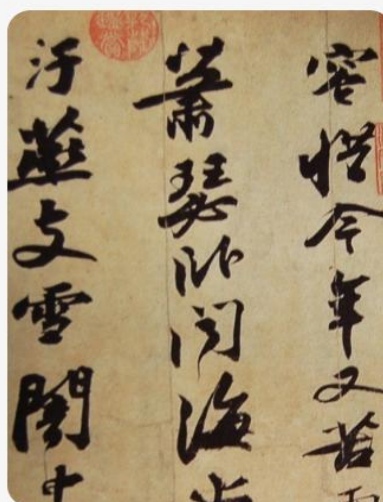 容惜今年又苦雨
蕭瑟臥聞海
汙燕支雪闇中